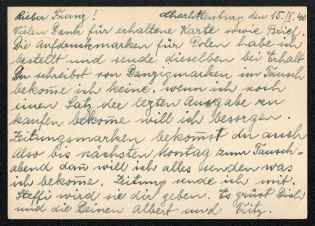 Lieber Franz! Charlottenburg den 15.II.40
Vielen Dank für erhaltene Karte sowie Brief.
Die Aufdruckmarken für Polen habe ich
bestellt und sende dieselben bei Erhalt
Du schreibst von Danzigmarken im Tausch
bekome ich keine, wenn ich noch
einen Satz der lezten Ausgabe zu
kaufen bekome will ich besorgen.
Zeitungsmarken bekomst du auch
Also bis nächsten Montag zum Tausch-
abend dann will ich alles senden was
ich bekome. Zeitung sende ich mit.
Steffi wird sie dir geben. Es grüst Dich
und die Deinen Albert und Fritz.